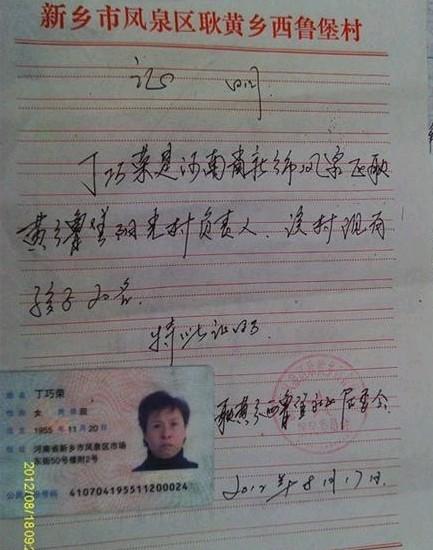 新乡市凤泉区耿黄乡西鲁堡村
证明
丁巧荣是河南省新乡市凤泉区耿
黄乡鲁堡村负责人.该村现有
孩子20名.
特此证明
耿黄乡西鲁堡村居委会
2012年8月17日
姓名 丁巧荣
性别 女 民族 汉
出生 1955年11月20日
住址 河南省新乡市凤泉区市场
东街50号楼附2号
公民身份号码 410704195511200024
2012/08/18092